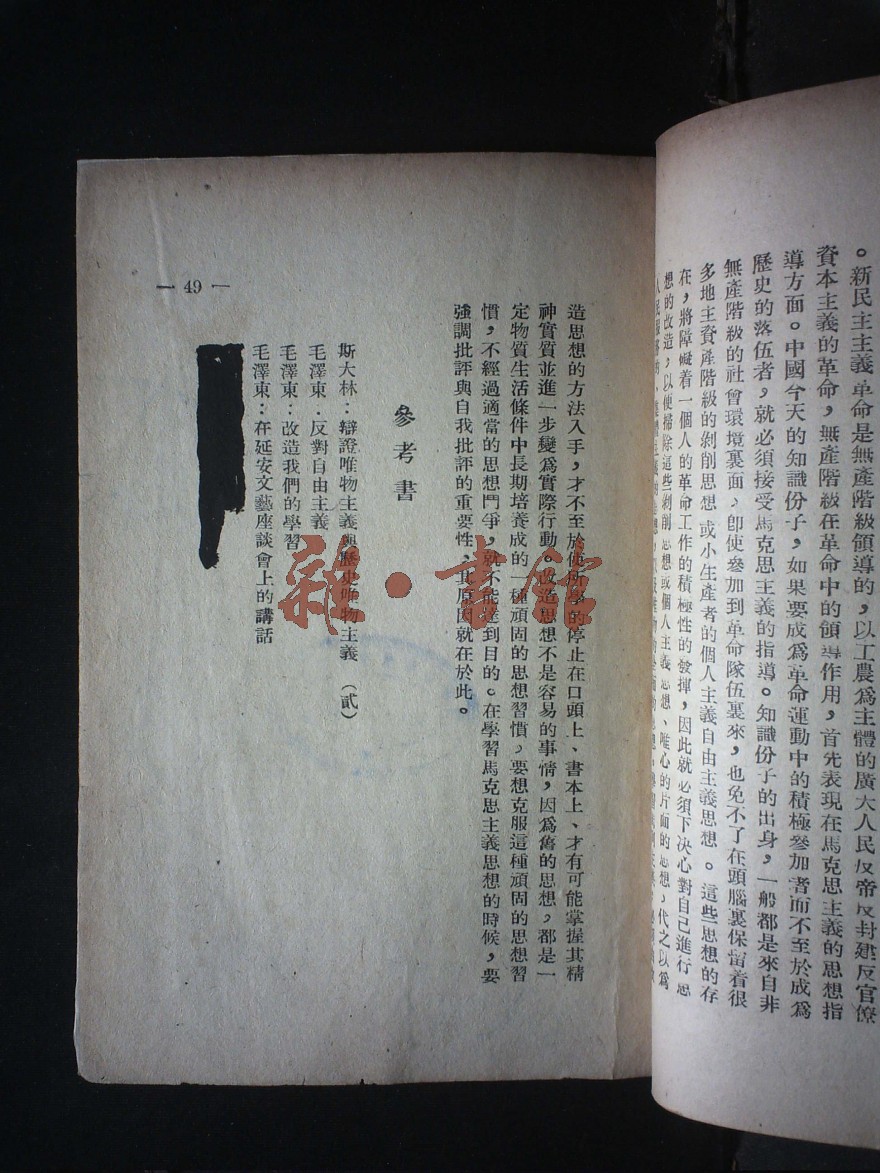 。新民主主義革命是無產階級領導的，以工農爲主體的廣大人民反帝反封建反官僚
資本主義的革命，無產階級在革命中的領導作用，首先表現在馬克思主義的思想指
導方面。中國今天的知識份子，如果要成爲革命運動中的積極參加者而不至於成爲
歷史的落伍者，就必須接受馬克思主義的指導。知識份子的出身，一般都是來自非
無產階級的社會環境裏面，卽使參加到革命隊伍裏來，也免不了在頭腦裏保留着很
多地主資產階級的剝削思想 或小生產者的個人主義自由主義思想。這些思想的存
在，將障礙着一個人的革命工作的積極性的發揮，因此就必須下決心對自己進行思
想的改造，以便掃除這些剝削思想或個人主義思想、唯心的片面的思想，代之以爲
人民服務的
造思想的方法入手，才不至於使所學的停止在口頭上、書本上、才有可能掌握其精
神實質並進一步變爲實際行動。改造思想不是容易的事情，因爲舊的思想，都是一
定物質生活條件中長期培養成的一種頑固的思想習慣，要想克服這種頑固的思想習
慣，不經過適當的思想鬥爭，就不能達到目的。在學習馬克思主義思想的時候，要
強調批評與自我批評的重要性，其原因就在於此。
參考書
斯大林：辯證唯物主義與歷史唯物主義 （貳）
毛澤東：反對自由主義
毛澤東：改造我們的學習
毛澤東：在延安文藝座談會上的講話
— 49 —
雜·書館